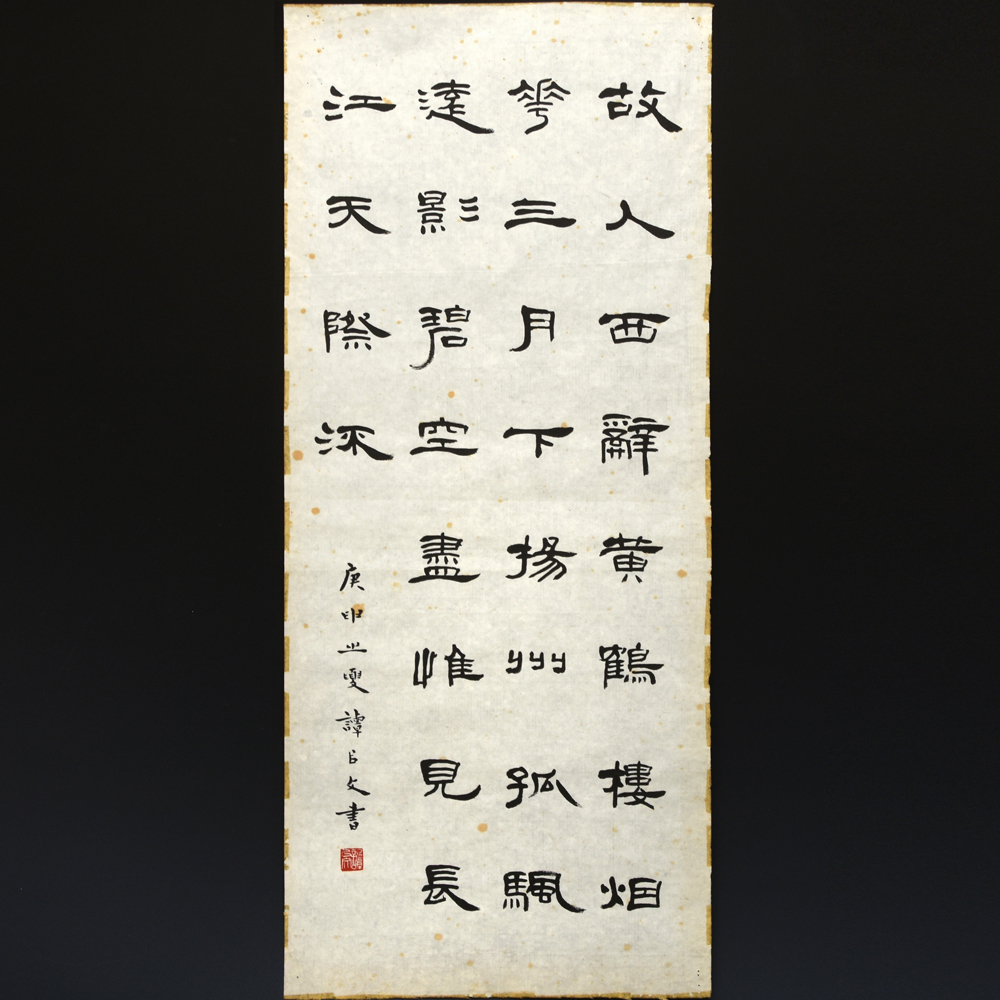 故人西辭黄鶴樓烟
華三月下揚州孤颿
遠影碧空盡惟見長
江天際流
庚申之夏譚㠯文書